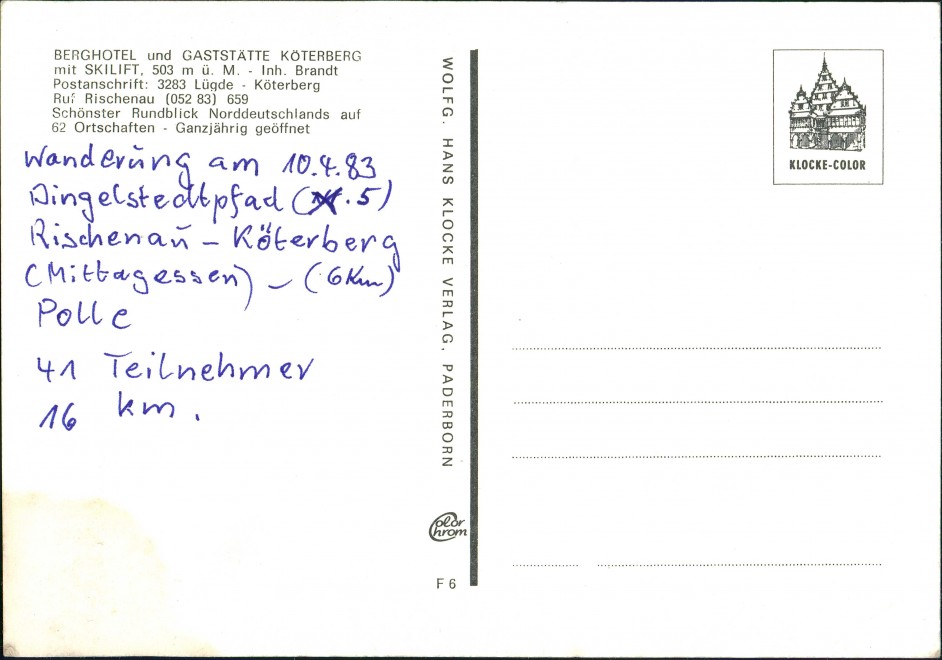 BERGHOTEL und GASTSTÄTTE KÖTERBERG
mit SKILIFT, 503 m ü. M. - Inh. Brandt
Postanschrift: 3283 Lügde - Köterberg
Ruf Rischenau (052 83) 659
Schönster Rundblick Norddeutschlands auf
62 Ortschaften - Ganzjährig geöffnet
Wanderung am 10.4.83
Dingelstedtpfad (X .5)
Rischenau – Köterberg
(Mittagessen) – (6 Km)
Polle
41 Teilnehmer
16 km.
WOLFG. HANS KLOCKE VERLAG, PADERBORN
Color Chrom
F 6
KLOCKE-COLOR